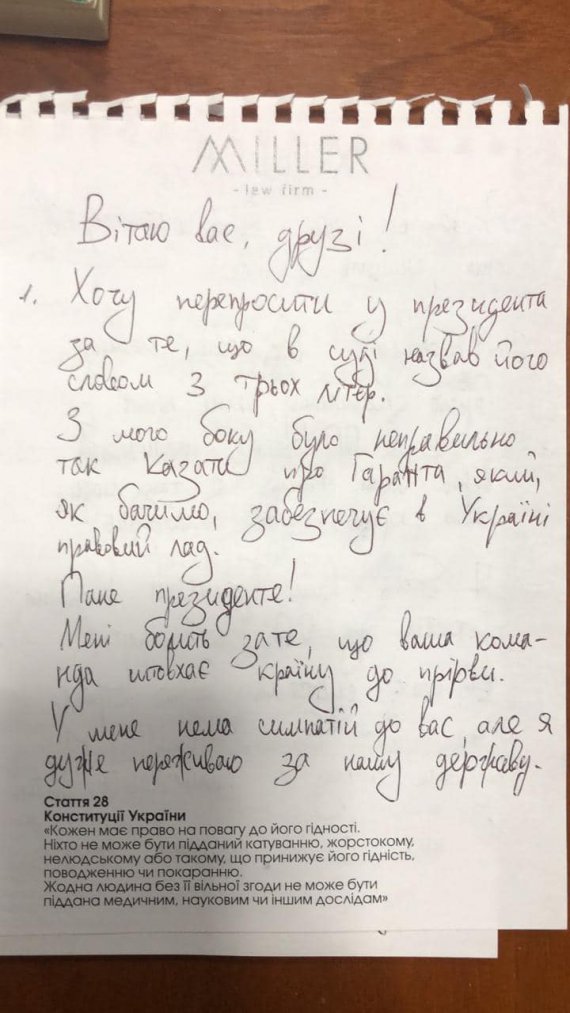 MILLER
- law firm -
Вітаю вас, друзі!
1. Хочу перепросити у президента
за те, що в суді назвав його
словом з трьох літер.
З мого боку було неправильно
так казати про Гаранта, який,
як бачимо, забезпечує в Україні
правовий лад.
Пане президенте!
Мені болить за те, що ваша кома-
нда штовхає країну до прірви.
У мене нема симпатій до вас, але я
дуже переживаю за нашу державу.
Стаття 28
Конституції України
«Кожен має право на повагу до його гідності.
Ніхто не може бути підданий катуванню, жорстокому,
нелюдському або такому, що принижує його гідність,
поводженню чи покаранню.
Жодна людина без її вільної згоди не може бути
піддана медичним, науковим чи іншим дослідам»